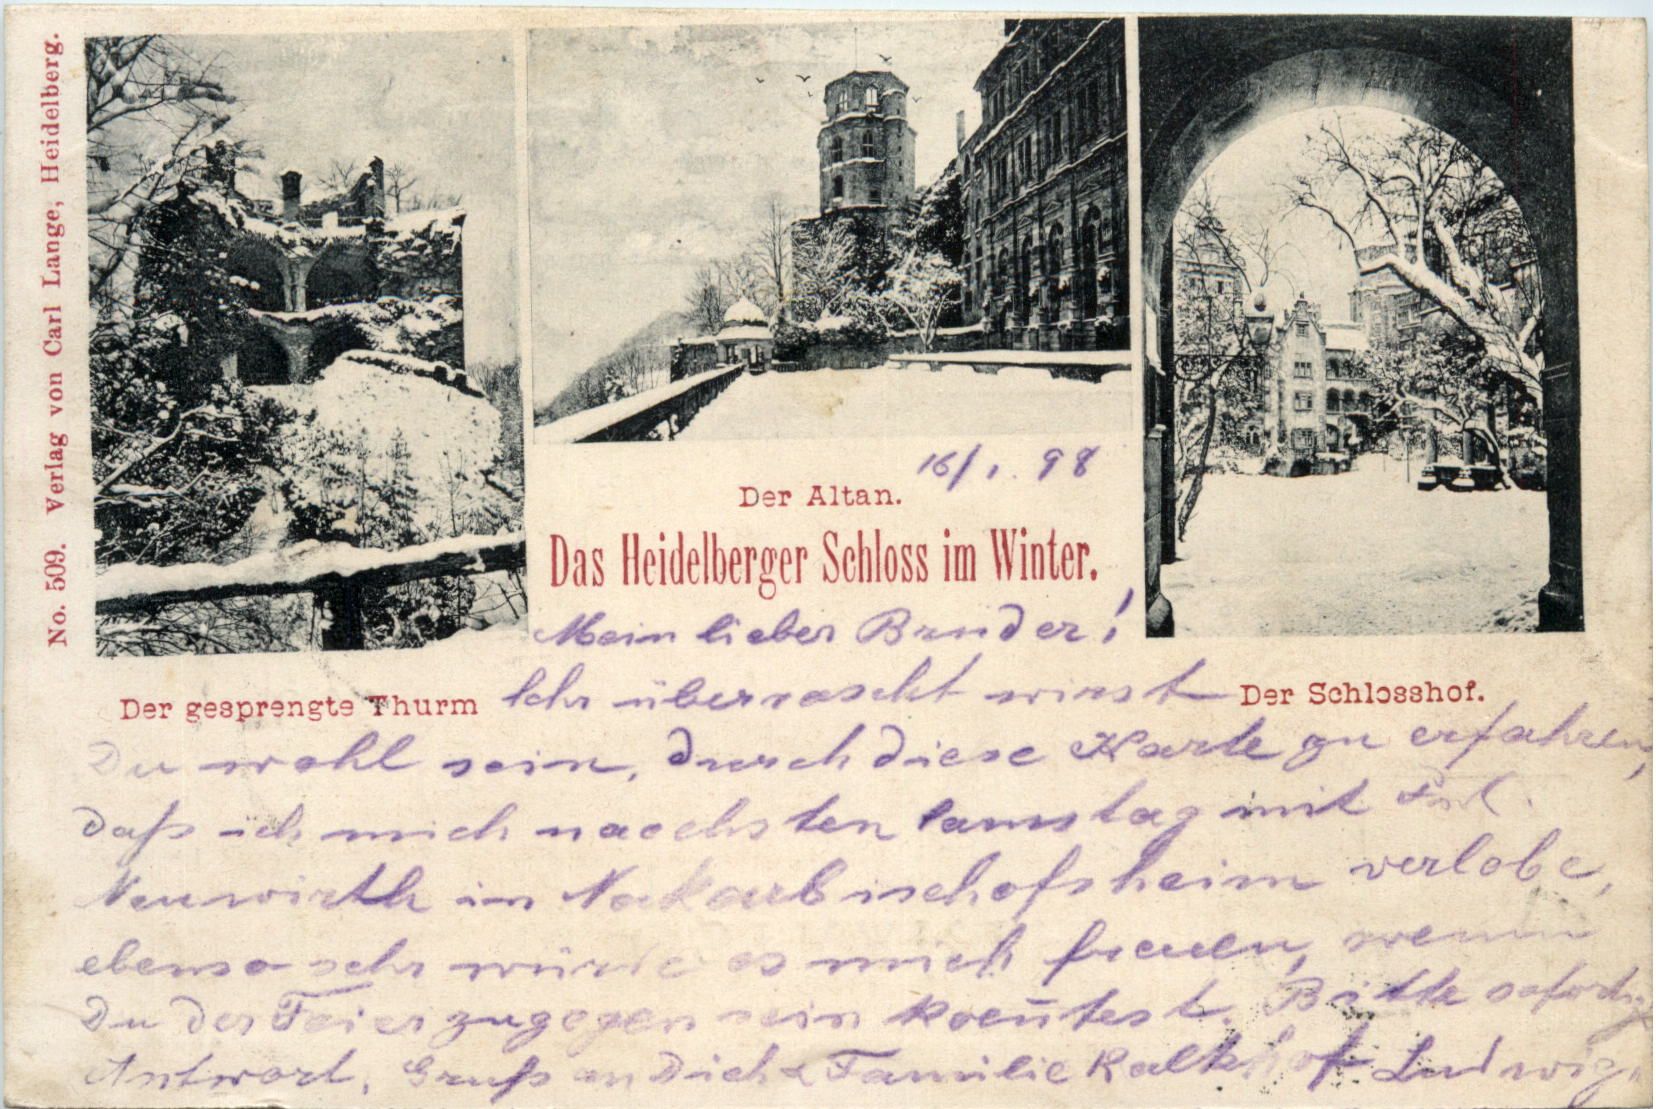 No. 509. Verlag von Carl Lange, Heidelberg.
16/1. 98
Der Altan.
Das Heidelberger Schloss im Winter.
Mein lieber Bruder!
Der gesprengte Thurm
Sehr überrascht wirst
Der Schlosshof.
Du wohl sein, durch diese Karte zu erfahren,
daß ich mich naechsten Samstag mit Frl.
Neuwirth in Nekarbischofsheim verlobe,
ebenso sehr würde es mich freuen, wenn
Du der Feier zugegen sein koentest. Bitte sofortige
Antwort. Gruß an Dich & Familie Kalkhof Ludwig.